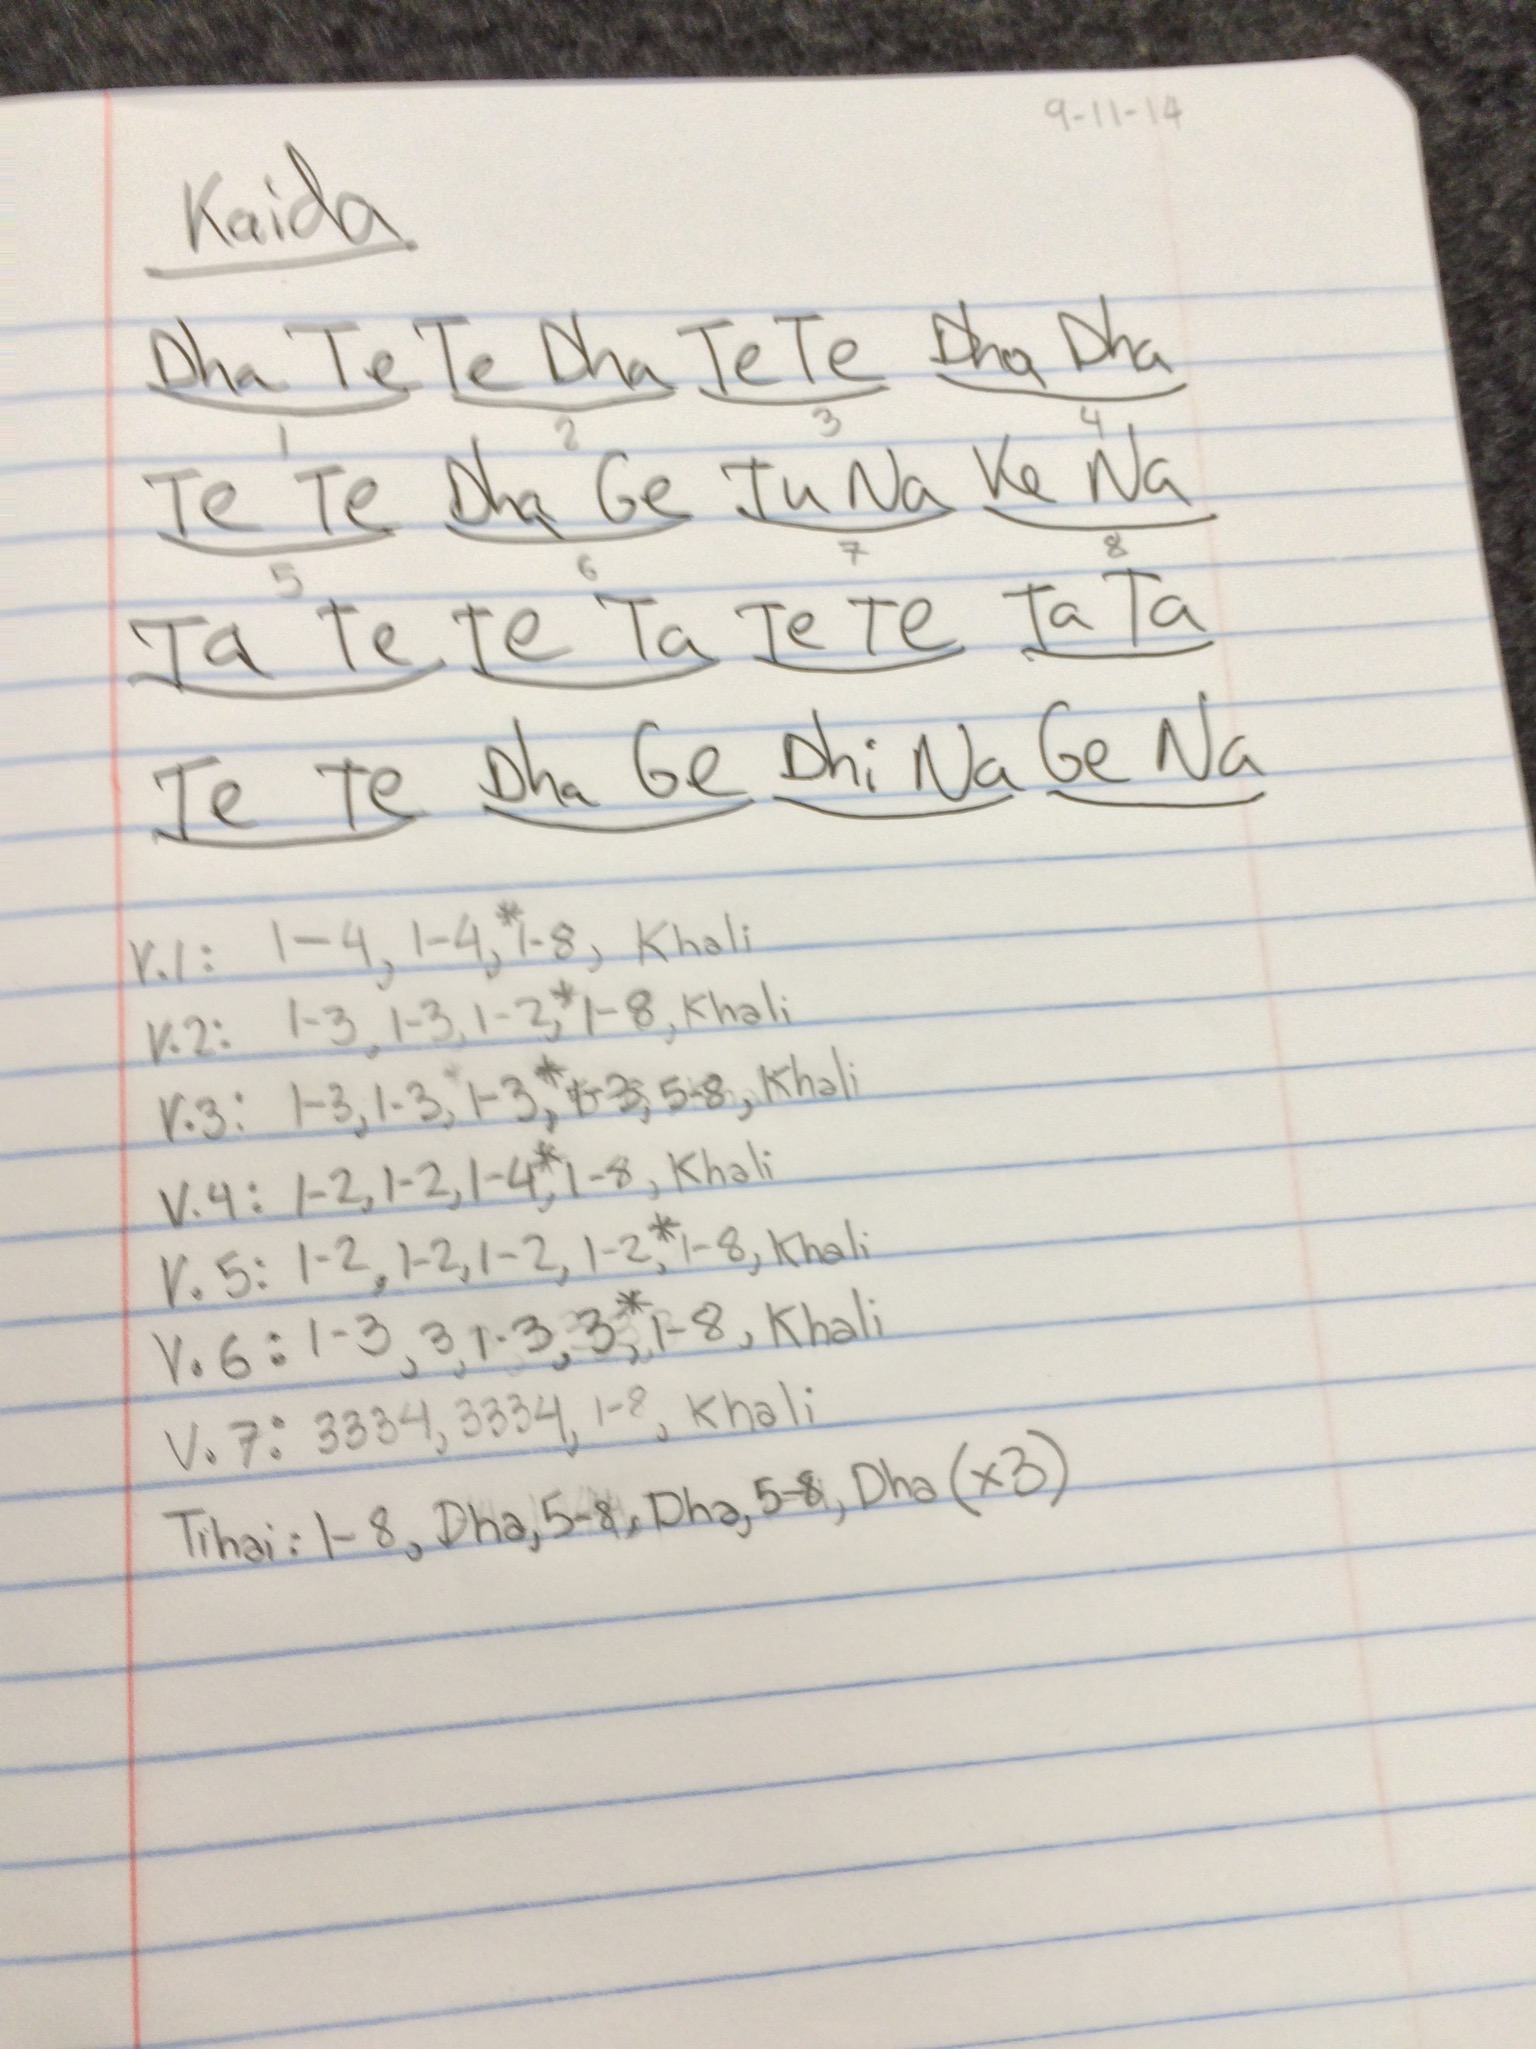 9-11-14
Kaida
Dha Te Te Dha Te Te Dha Dha
1 2 3 4
Te Te Dha Ge Tu Na Ke Na
5 6 7 8
Ta Te Te Ta Te Te Ta Ta
Te Te Dha Ge Dhi Na Ge Na
V.1: 1-4, 1-4,* 1-8, Khali
V.2: 1-3, 1-3, 1-2,* 1-8, Khali
V.3: 1-3, 1-3, 1-3,* 1-3, 5-8, Khali
V.4: 1-2, 1-2, 1-4,* 1-8, Khali
V.5: 1-2, 1-2, 1-2, 1-2,* 1-8, Khali
V.6: 1-3, 3, 1-3, 3,* 1-8, Khali
V.7: 3334, 3334, 1-8, Khali
Tihai: 1-8, Dha, 5-8, Dha, 5-8, Dha (x3)